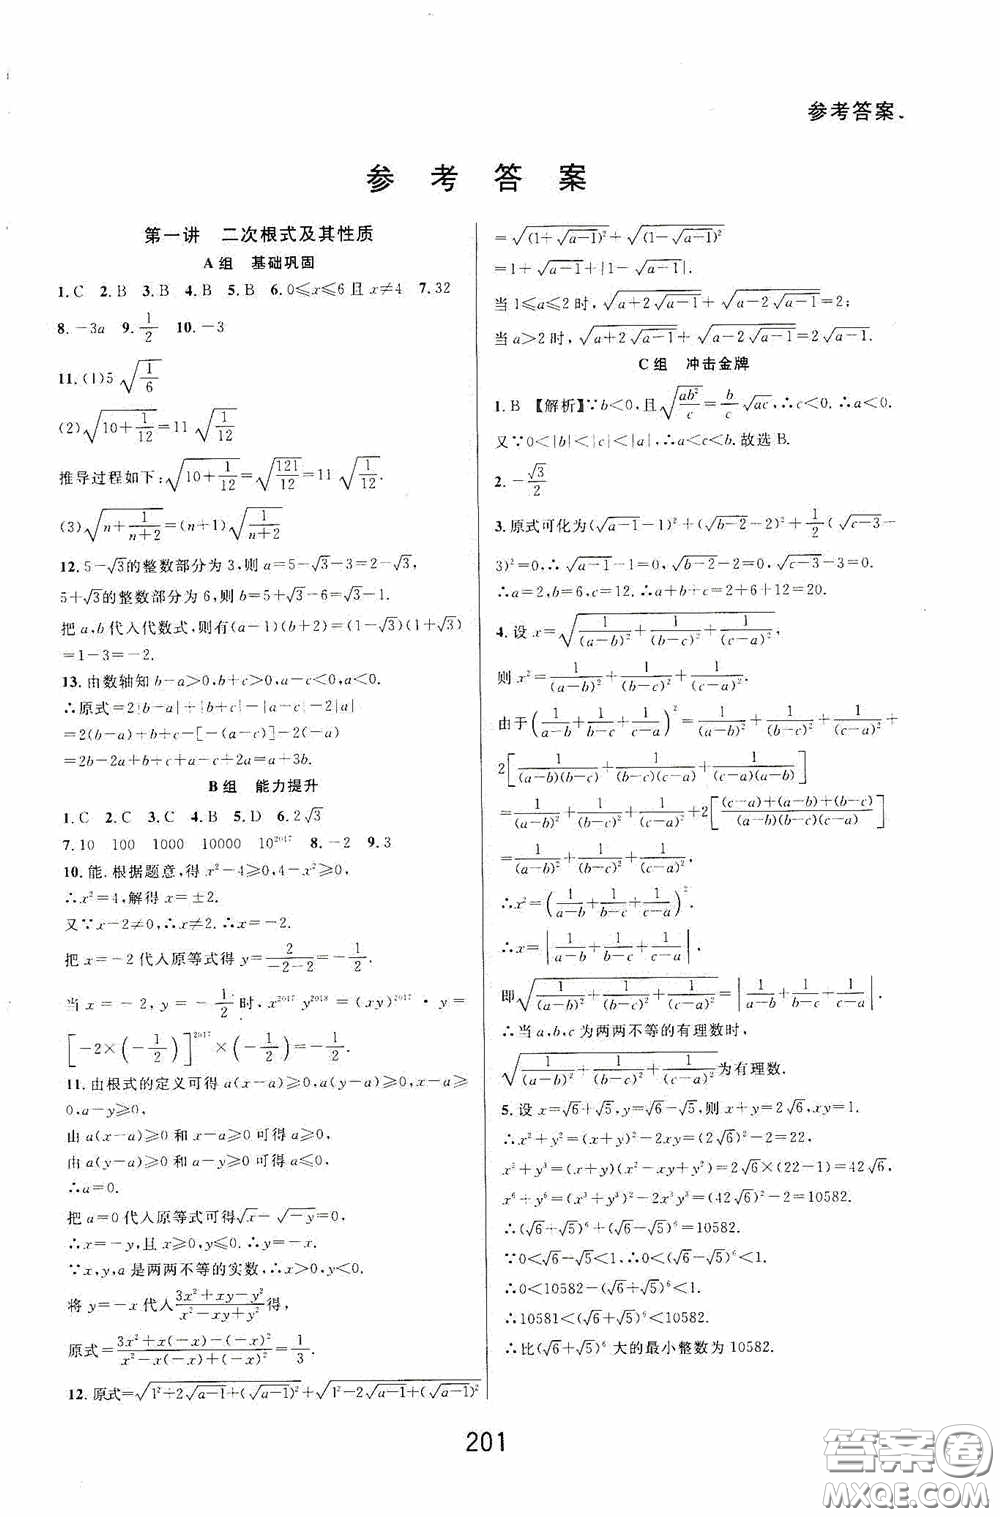 参考答案
参 考 答 案
第一讲 二次根式及其性质
A 组 基础巩固
1.C 2.B 3.B 4.B 5.B 6.0⩽x⩽6 且 x≠4 7.32
8.-3a 9.1/2 10.-3
11.(1)5√(1/6)
(2)√(10+1/12)=11√(1/12)
推导过程如下:√(10+1/12)=√(121/12)=11√(1/12).
(3)√(n+1/(n+2))=(n+1)√(1/(n+2))
12.5-√3的整数部分为 3,则 a=5-√3-3=2-√3.
5+√3的整数部分为 6,则 b=5+√3-6=√3-1.
把 a,b 代入代数式,则有(a-1)(b+2)=(1-√3)(1+√3)
=1-3=-2.
13.由数轴知 b-a>0,b+c>0,a-c<0,a<0.
∴原式=2|b-a|+|b+c|-|a-c|-2|a|
=2(b-a)+b+c-[-(a-c)]-2(-a)
=2b-2a+b+c+a-c+2a=a+3b.
B 组 能力提升
1.C 2.C 3.C 4.B 5.D 6.2√3
7.10 100 1000 10000 10²⁰¹⁷ 8.-2 9.3
10.能.根据题意,得 x²-4⩾0,4-x²⩾0,
∴x²=4,解得 x=±2.
又∵x-2≠0,∴x≠2.∴x=-2.
把 x=-2 代入原等式得 y=2/(-2-2)=-1/2.
当 x=-2,y=-1/2时,x²⁰¹⁷y²⁰¹⁸=(xy)²⁰¹⁷·y=
[-2×(-1/2)]²⁰¹⁷×(-1/2)=-1/2.
11.由根式的定义可得 a(x-a)⩾0,a(y-a)⩾0,x-a⩾
0,a-y⩾0,
由 a(x-a)⩾0 和 x-a⩾0 可得 a⩾0;
由 a(y-a)⩾0 和 a-y⩾0 可得 a⩽0.
∴a=0.
把 a=0 代入原等式可得√x-√(-y)=0,
∴x=-y,且 x⩾0,∴y=-x.
∵x,y,a 是两两不等的实数,∴x>0,y<0.
将 y=-x 代入(3x²+xy-y²)/(x²-xy+y²)得,
原式=(3x²+x(-x)-(-x)²)/(x²-x(-x)+(-x)²)=1/3.
12.原式=√(1²+2√(a-1)+(√(a-1))²)+√(1²-2√(a-1)+(√(a-1))²)
=√((1+√(a-1))²)+√((1-√(a-1))²)
=1+√(a-1)+|1-√(a-1)|.
当 1⩽a⩽2 时,√(a+2√(a-1))+√(a-2√(a-1))=2;
当 a>2 时,√(a+2√(a-1))+√(a-2√(a-1))=2√(a-1).
C 组 冲击金牌
1.B 【解析】∵b<0,且√(ab²/c)=(b/c)√(ac),∴c<0.∴a<0.
又∵0<|b|<|c|<|a|,∴a<c<b.故选 B.
2.-√3/2
3.原式可化为(√(a-1)-1)²+(√(b-2)-2)²+1/2(√(c-3)-
3)²=0,∴√(a-1)-1=0,√(b-2)-2=0,√(c-3)-3=0.
∴a=2,b=6,c=12.∴a+b+c=2+6+12=20.
4.设 x=√(1/(a-b)²+1/(b-c)²+1/(c-a)²),
则 x²=1/(a-b)²+1/(b-c)²+1/(c-a)².
由于(1/(a-b)+1/(b-c)+1/(c-a))²=1/(a-b)²+1/(b-c)²+1/(c-a)²+
2[1/((a-b)(b-c))+1/((b-c)(c-a))+1/((c-a)(a-b))]
=1/(a-b)²+1/(b-c)²+1/(c-a)²+2[((c-a)+(a-b)+(b-c))/((a-b)(b-c)(c-a))]
=1/(a-b)²+1/(b-c)²+1/(c-a)²,
∴x²=(1/(a-b)+1/(b-c)+1/(c-a))².
∴x=|1/(a-b)+1/(b-c)+1/(c-a)|,
即√(1/(a-b)²+1/(b-c)²+1/(c-a)²)=|1/(a-b)+1/(b-c)+1/(c-a)|.
∴当 a,b,c 为两两不等的有理数时,
√(1/(a-b)²+1/(b-c)²+1/(c-a)²)为有理数.
5.设 x=√6+√5,y=√6-√5,则 x+y=2√6,xy=1.
∴x²+y²=(x+y)²-2xy=(2√6)²-2=22,
x³+y³=(x+y)(x²-xy+y²)=2√6×(22-1)=42√6.
x⁶+y⁶=(x³+y³)²-2x³y³=(42√6)²-2=10582.
∴(√6+√5)⁶+(√6-√5)⁶=10582.
∵0<√6-√5<1,∴0<(√6-√5)⁶<1.
∴0<10582-(√6+√5)⁶<1.
∴10581<(√6+√5)⁶<10582.
∴比(√6+√5)⁶ 大的最小整数为 10582.
201
答案圈
MXQE.COM